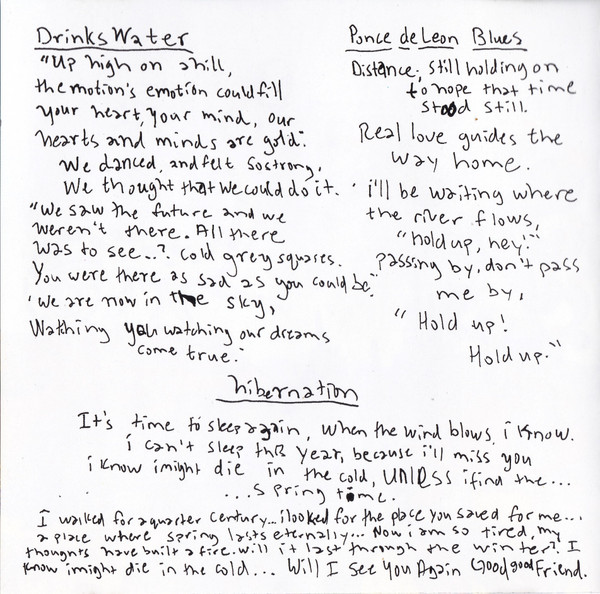 Drinks Water
"Up high on a hill,
the motion's emotion could fill
your heart, your mind, our
hearts and minds are gold."
We danced, and felt so strong,
We thought that we could do it.
"We saw the future and we
weren't there. All there
was to see..? cold grey squares.
You were there as sad as you could be."
"we are now in the sky,
Watching you watching our dreams
come true."
Ponce de Leon Blues
Distance; still holding on
to hope that time
stood still.
Real love guides the
way home.
i'll be waiting where
the river flows,
"hold up, hey!"
passing by, don't pass
me by,
"Hold up!
Hold up."
hibernation
It's time to sleep again, when the wind blows, i know.
i can't sleep this year, because i'll miss you
i know i might die in the cold, UNLESS i find the...
...spring time.
I walked for a quarter century... i looked for the place you saved for me...
a place where spring lasts eternally... Now i am so tired, my
thoughts have built a fire. will it last through the winter? I
know i might die in the cold... Will I see you Again Good good Friend.